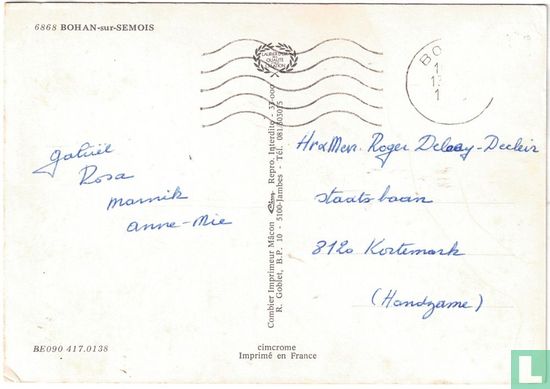 6868 BOHAN-sur-SEMOIS
BO
1
1
1
gabriël
Rosa
marnik
anne-Mie
Combier Imprimeur Mâcon Cim Repro. Interdite - 37-000
R. Goblet, B.P. 10 - 5100-Jambes - Tél. 081/303015
Hr & Mevr. Roger Delaey-Decleir
staatsbaan
8120 Kortemark
(Handzame)
BE090 417.0138
cimcrome
Imprimé en France
LastDodo